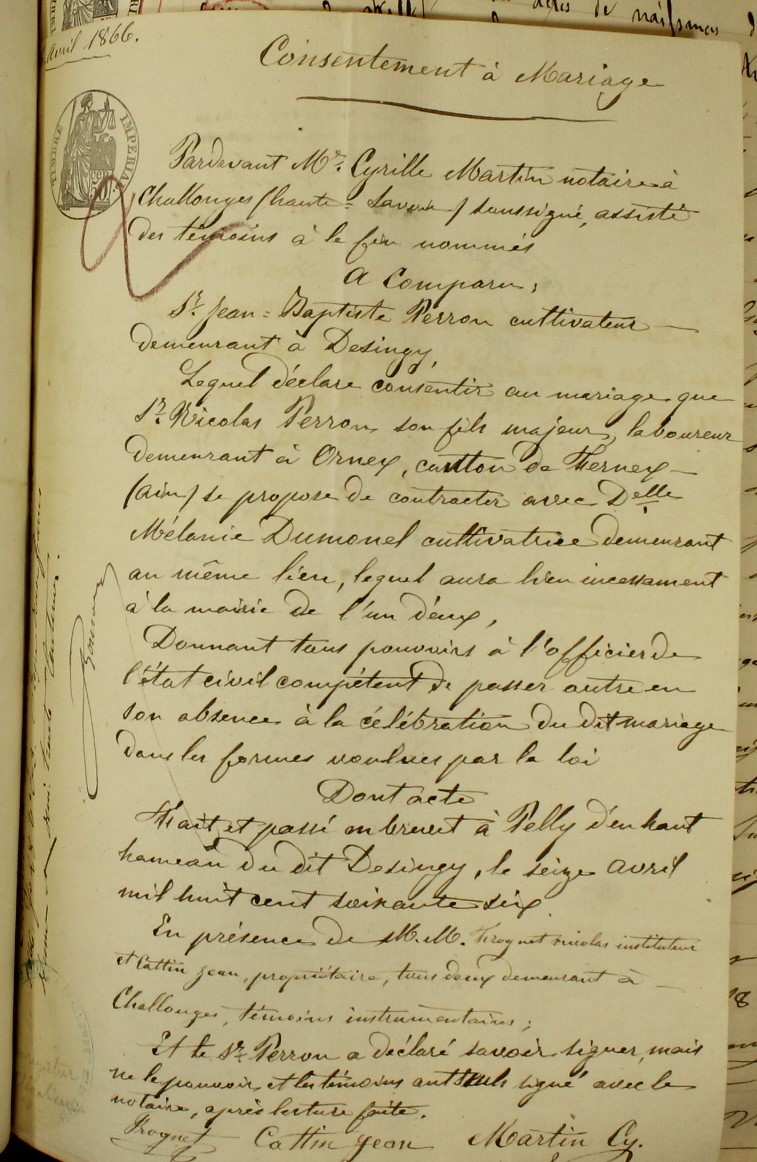 avril 1866.
Consentement à Mariage
TIMBRE IMPÉRIAL
Pardevant Me. Cyrille Martin notaire à
Challonges (haute = Savoie) soussigné, assisté
des témoins à le fin nommés
A Comparu;
Sr. Jean = Baptiste Perron cultivateur
demeurant à Desingy,
Lequel déclare consentir au mariage que
Sr. Nicolas Perron son fils majeur, laboureur
demeurant à Ornex, canton de Ferney
(ain) se propose de contracter avec Delle
Mélanie Dumonel cultivatrice demeurant
au même lieu, lequel aura lieu incessament
à la mairie de l'un d'eux,
Donnant tous pouvoirs à l'officier de
l'état civil compétent de passer outre en
son absence à la célébration du dit mariage
dans les formes voulues par la loi
Dont acte
Fait et passé en brevet à Pelly d'en haut
hameau du dit Desingy, le seize avril
mil huit cent soixante six
En présence de M.M. Frognet nicolas instituteur
et Cattin Jean, propriétaire, tous deux demeurant à
Challonges, témoins instrumentaires;
Et le Sr. Perron a déclaré savoir signer, mais
ne le pouvoir, et les témoins ont seuls signé avec le
notaire, après lecture faite.
Frognet Cattin Jean Martin Cy.